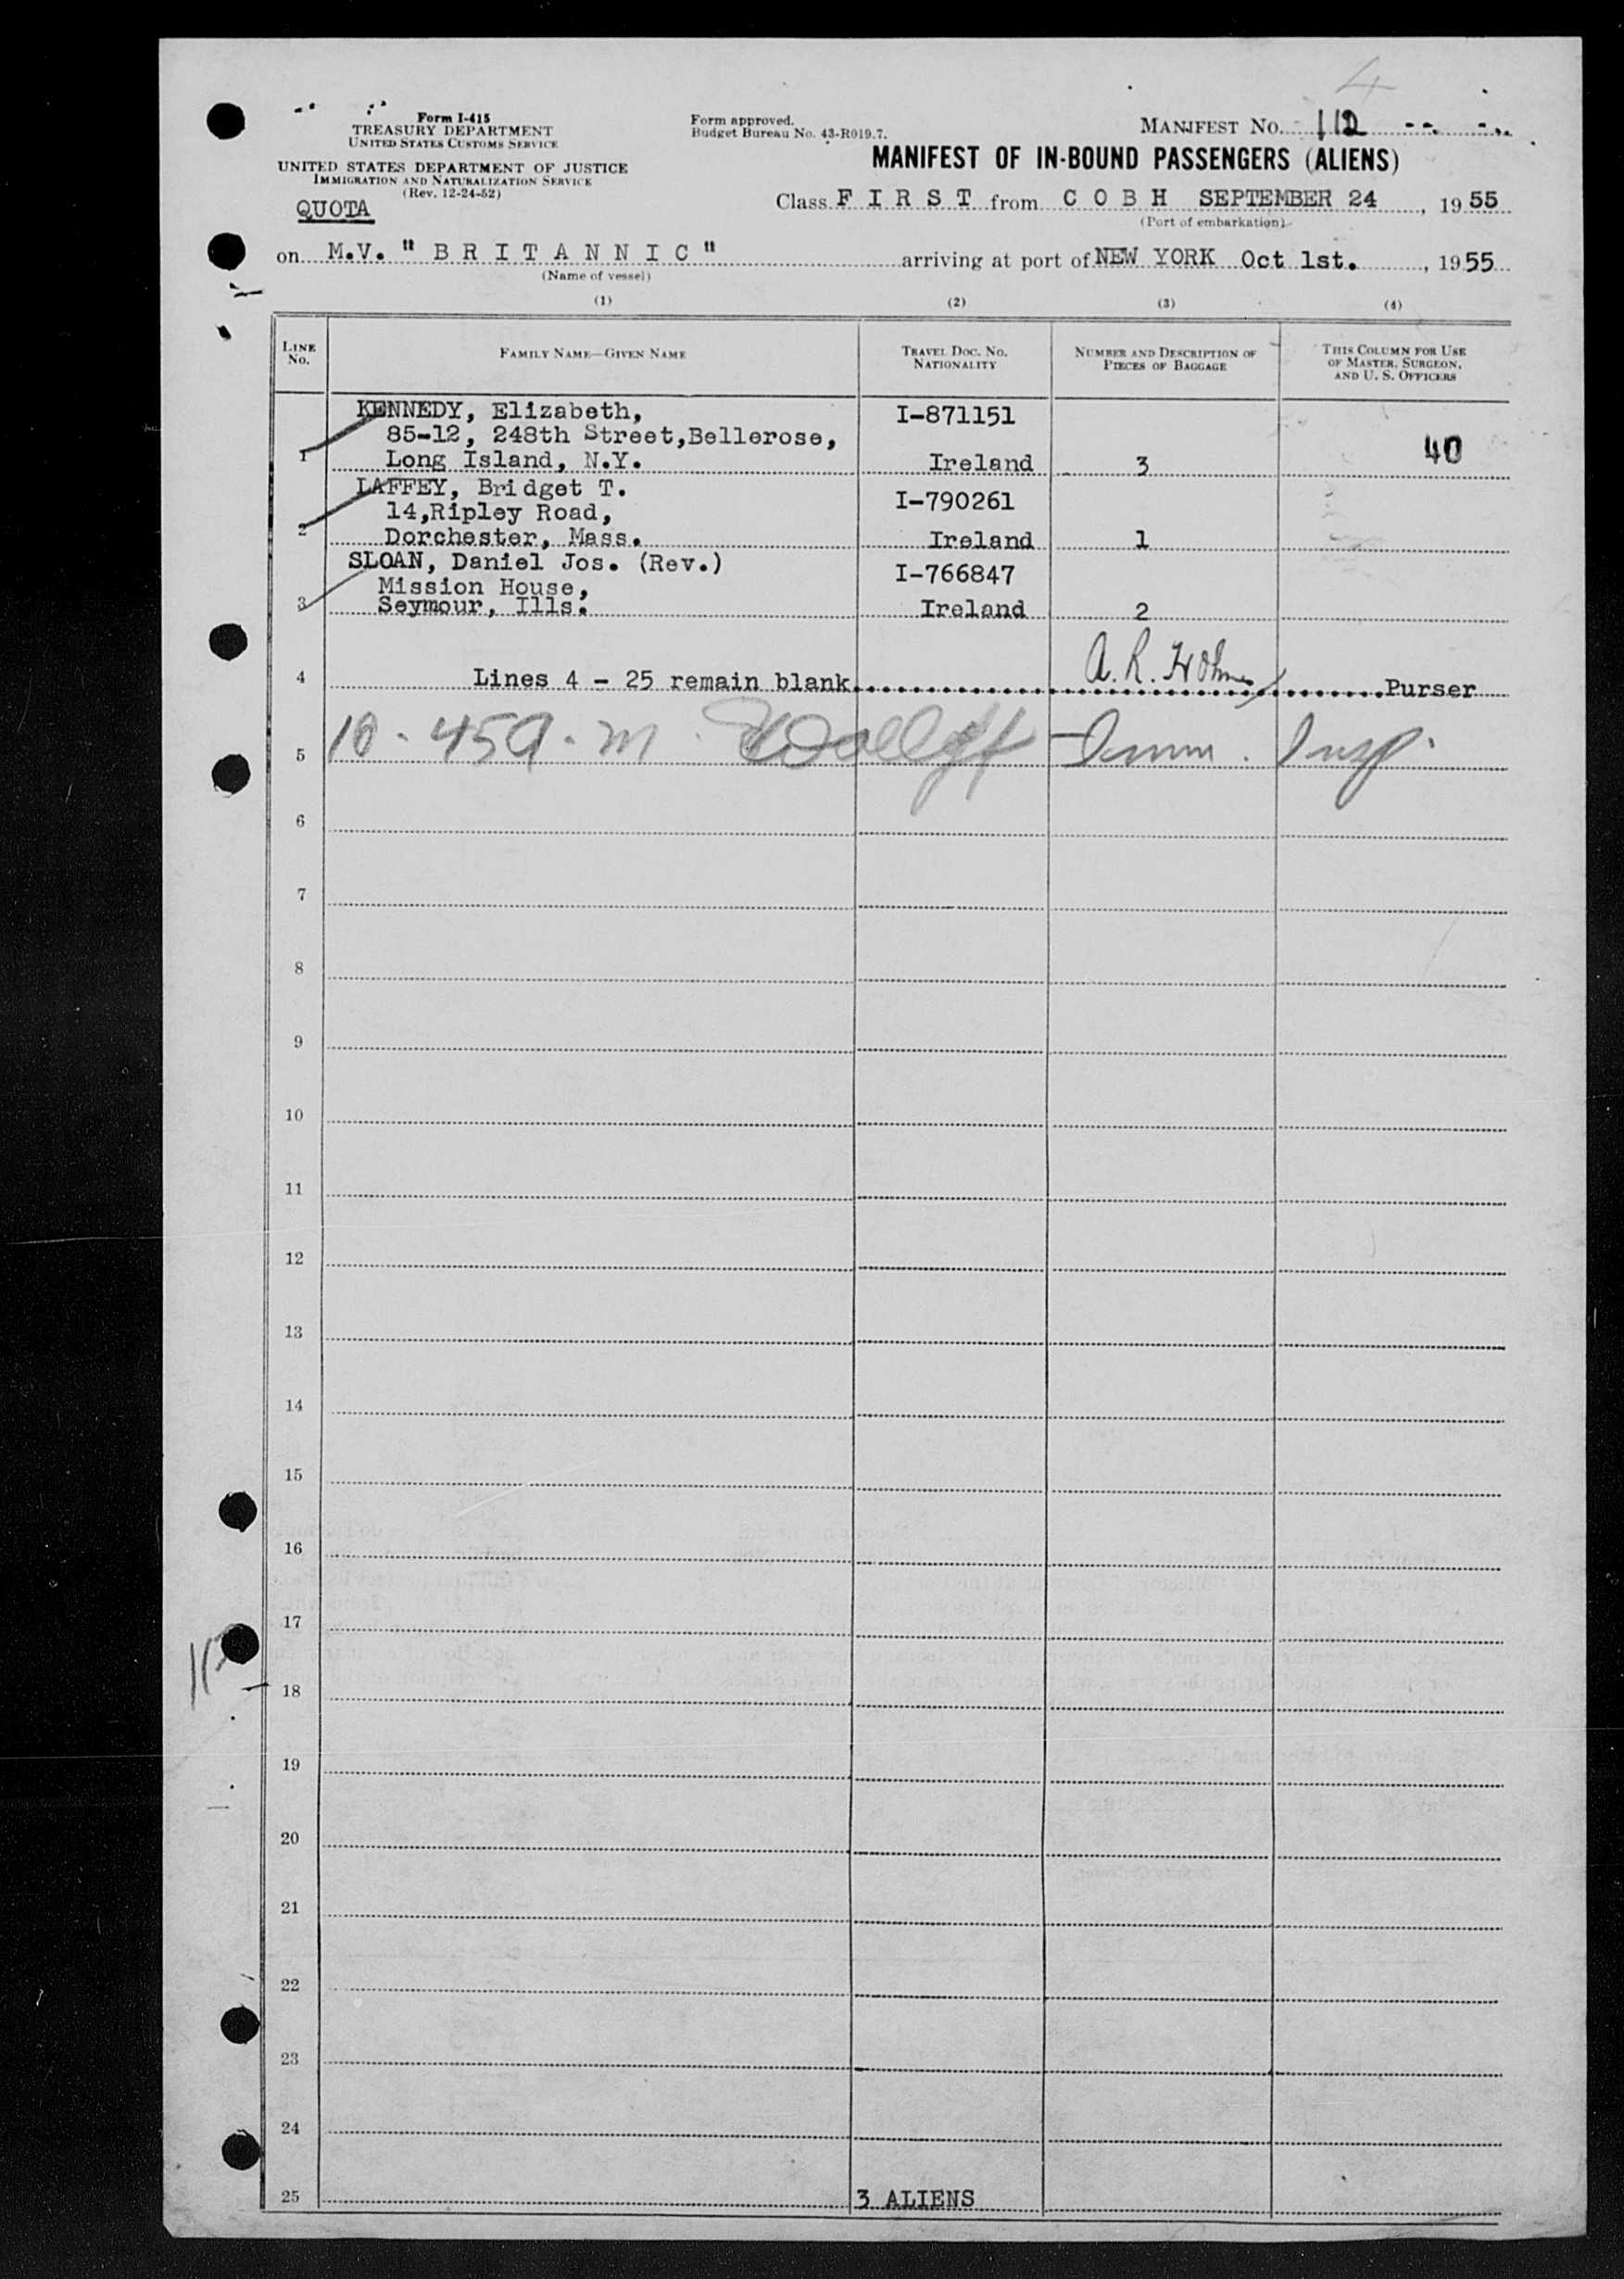 4
Form I-415
TREASURY DEPARTMENT
UNITED STATES CUSTOMS SERVICE
UNITED STATES DEPARTMENT OF JUSTICE
IMMIGRATION AND NATURALIZATION SERVICE
(Rev. 12-24-52)
QUOTA
Form approved.
Budget Bureau No. 43-R019.7.
MANIFEST NO. 112
MANIFEST OF IN-BOUND PASSENGERS (ALIENS)
Class F I R S T from C O B H SEPTEMBER 24, 1955
(Port of embarkation)
on M.V. "B R I T A N N I C" arriving at port of NEW YORK Oct 1st., 1955
(Name of vessel)
(1) (2) (3) (4)
LINE No. FAMILY NAME—GIVEN NAME TRAVEL DOC. NO. NATIONALITY NUMBER AND DESCRIPTION OF PIECES OF BAGGAGE THIS COLUMN FOR USE OF MASTER, SURGEON, AND U. S. OFFICERS
KENNEDY, Elizabeth, I-871151
85-12, 248th Street,Bellerose, 40
1 Long Island, N.Y. Ireland 3
LAFFEY, Bridget T. I-790261
14,Ripley Road,
2 Dorchester, Mass. Ireland 1
SLOAN, Daniel Jos. (Rev.) I-766847
Mission House,
3 Seymour, Ills. Ireland 2
4 Lines 4 - 25 remain blank A. R. Purser
5 10-45 a.m. Imm. Insp.
6
7
8
9
10
11
12
13
14
15
16
17
18
19
20
21
22
23
24
25 3 ALIENS